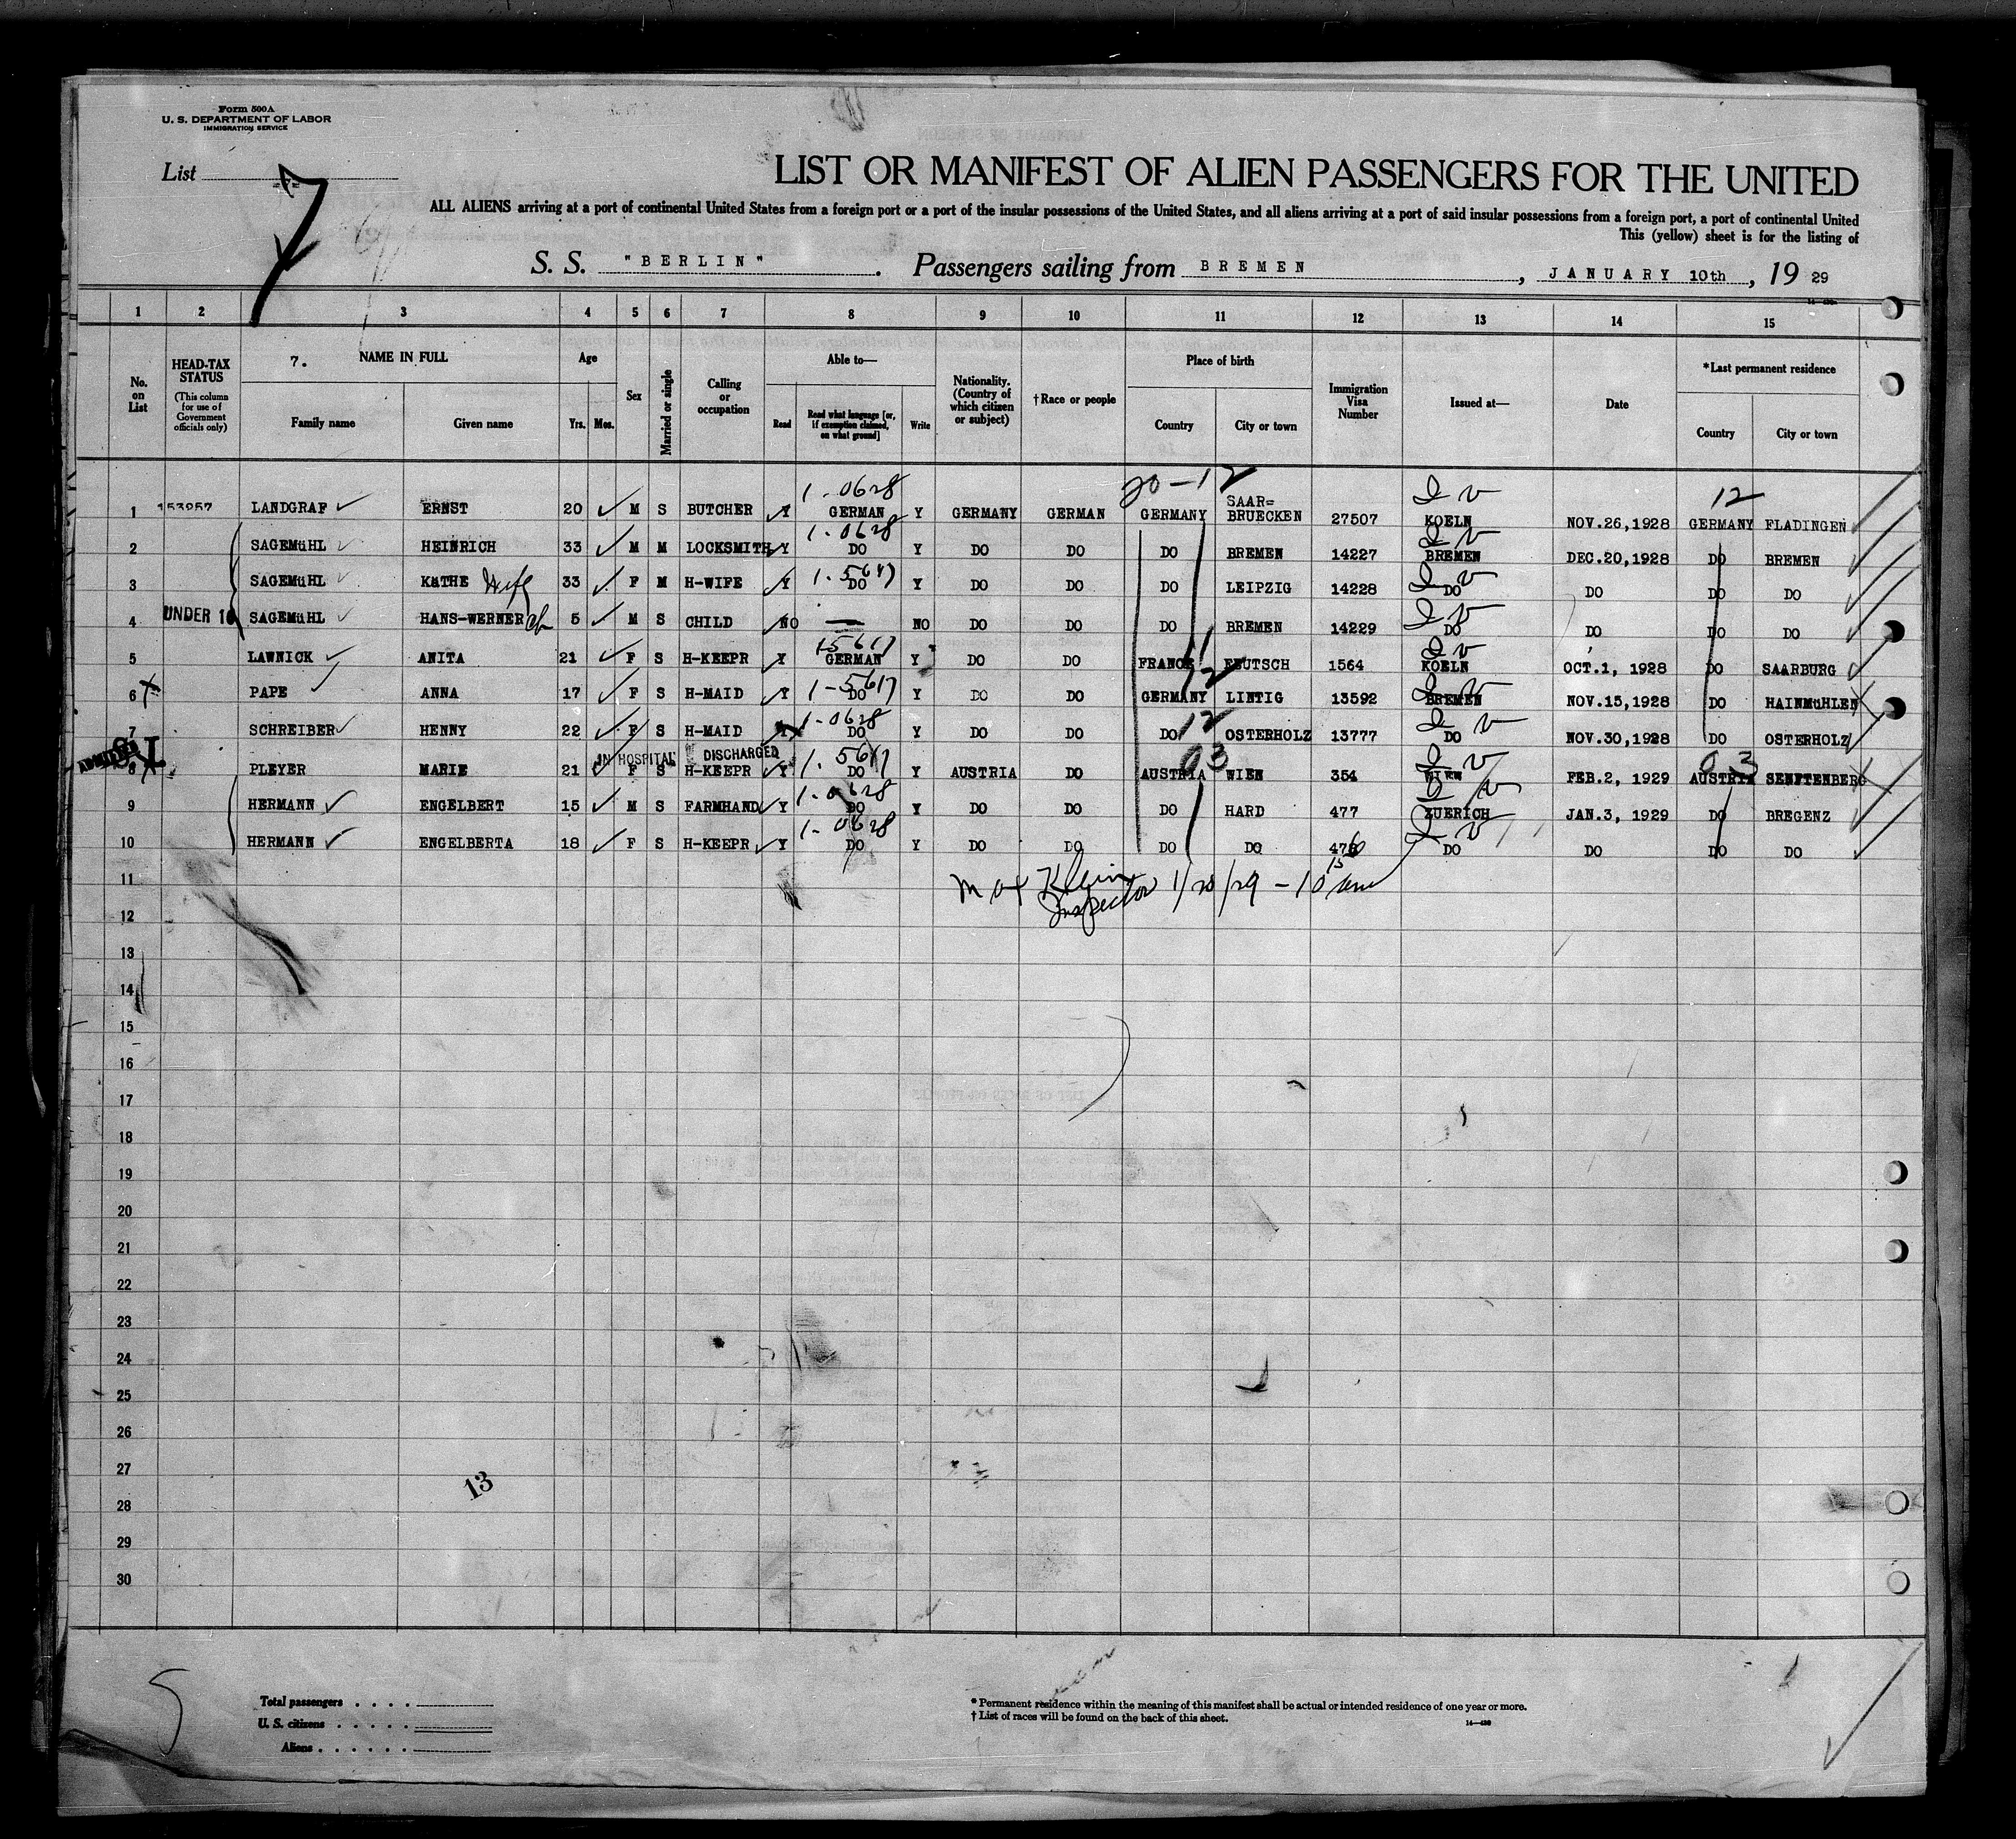 Form 500A
U. S. DEPARTMENT OF LABOR
IMMIGRATION SERVICE
List
7
LIST OR MANIFEST OF ALIEN PASSENGERS FOR THE UNITED
ALL ALIENS arriving at a port of continental United States from a foreign port or a port of the insular possessions of the United States, and all aliens arriving at a port of said insular possessions from a foreign port, a port of continental United
This (yellow) sheet is for the listing of
S. S. "BERLIN". Passengers sailing from BREMEN, JANUARY 10th, 19 29
1 2 3 4 5 6 7 8 9 10 11 12 13 14 15
No. on List
HEAD-TAX STATUS (This column for use of Government officials only)
7. NAME IN FULL
Family name Given name
Age
Yrs. Mos.
Sex
Married or single
Calling or occupation
Able to—
Read
Read what language [or, if exemption claimed, on what ground]
Write
Nationality. (Country of which citizen or subject)
†Race or people
Place of birth
Country City or town
Immigration Visa Number
Issued at—
Date
*Last permanent residence
Country City or town
1-0628 20-12 I V 12
1 153257 LANDGRAF ERNST 20 M S BUTCHER Y GERMAN Y GERMANY GERMAN GERMANY SAAR=BRUECKEN 27507 KOELN NOV.26,1928 GERMANY FLADINGEN
1-0628 I V
2 SAGEMüHL HEINRICH 33 M M LOCKSMITH Y DO Y DO DO DO BREMEN 14227 BREMEN DEC.20,1928 DO BREMEN
3 SAGEMüHL KäTHE Wife 33 F M H-WIFE Y 1-5617 DO Y DO DO DO LEIPZIG 14228 I V DO DO DO DO
4 UNDER 16 SAGEMüHL HANS-WERNER 5 M S CHILD NO — NO DO DO DO BREMEN 14229 I V DO DO DO DO
1-5617 11 I V
5 LAWNICK ANITA 21 F S H-KEEPR Y GERMAN Y DO DO FRANCE FEUTSCH 1564 KOELN OCT.1, 1928 DO SAARBURG
1-5617 12 I V
6 X PAPE ANNA 17 F S H-MAID Y DO Y DO DO GERMANY LINTIG 13592 BREMEN NOV.15,1928 DO HAINMüHLEN
1-0628 12 I V
7 SCHREIBER HENNY 22 F S H-MAID Y DO Y DO DO DO OSTERHOLZ 13777 DO NOV.30,1928 DO OSTERHOLZ
ADMITTED S I IN HOSPITAL DISCHARGED 1-5617 03 I V 03
8 PLEYER MARIE 21 F S H-KEEPR Y DO Y AUSTRIA DO AUSTRIA WIEN 354 WIEN FEB.2, 1929 AUSTRIA SENFTENBERG
1-0628 I V
9 HERMANN ENGELBERT 15 M S FARMHAND Y DO Y DO DO DO HARD 477 ZUERICH JAN.3, 1929 DO BREGENZ
1-0628 I V
10 HERMANN ENGELBERTA 18 F S H-KEEPR Y DO Y DO DO DO DO 476 DO DO DO DO
11 Max Klein 1/20/29 - 10 15 am
Inspector
12
13
14
15
16
17
18
19
20
21
22
23
24
25
26
27
13
28
29
30
Total passengers . . . .
U. S. citizens . . . . .
Aliens . . . . . .
* Permanent residence within the meaning of this manifest shall be actual or intended residence of one year or more.
† List of races will be found on the back of this sheet.
14—430